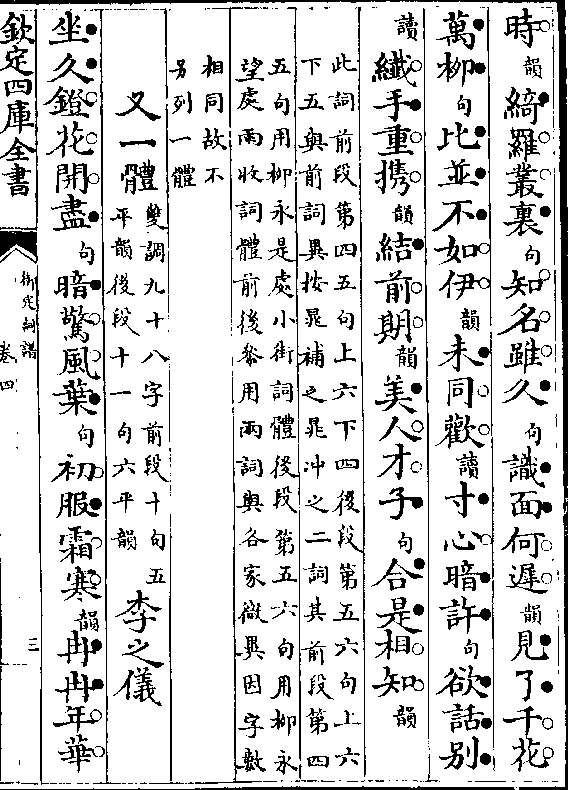 時韻綺羅叢裏句知名雖久句識面何遲韻見了千花
萬柳句比並不如伊韻未同歡讀寸心暗許句欲話別
讀纖手重携韻結前期韻美人才子句合是相知韻
此詞前段第四五句上六下四後段第五六句上六
下五與前詞異按晁補之晁冲之二詞其前段第四
五句用柳永是處小街詞體後段第五六句用柳永
望處雨收詞體前後叅用兩詞與各家微異因字數
相同故不
另列一體
又一體
雙調九十八字前段十句五
平韻後段十一句六平韻
李之儀
坐久鐙花開盡句暗驚風葉句初服霜寒韻冉冉年華
欽定四庫全書
御定詞譜
卷四
三